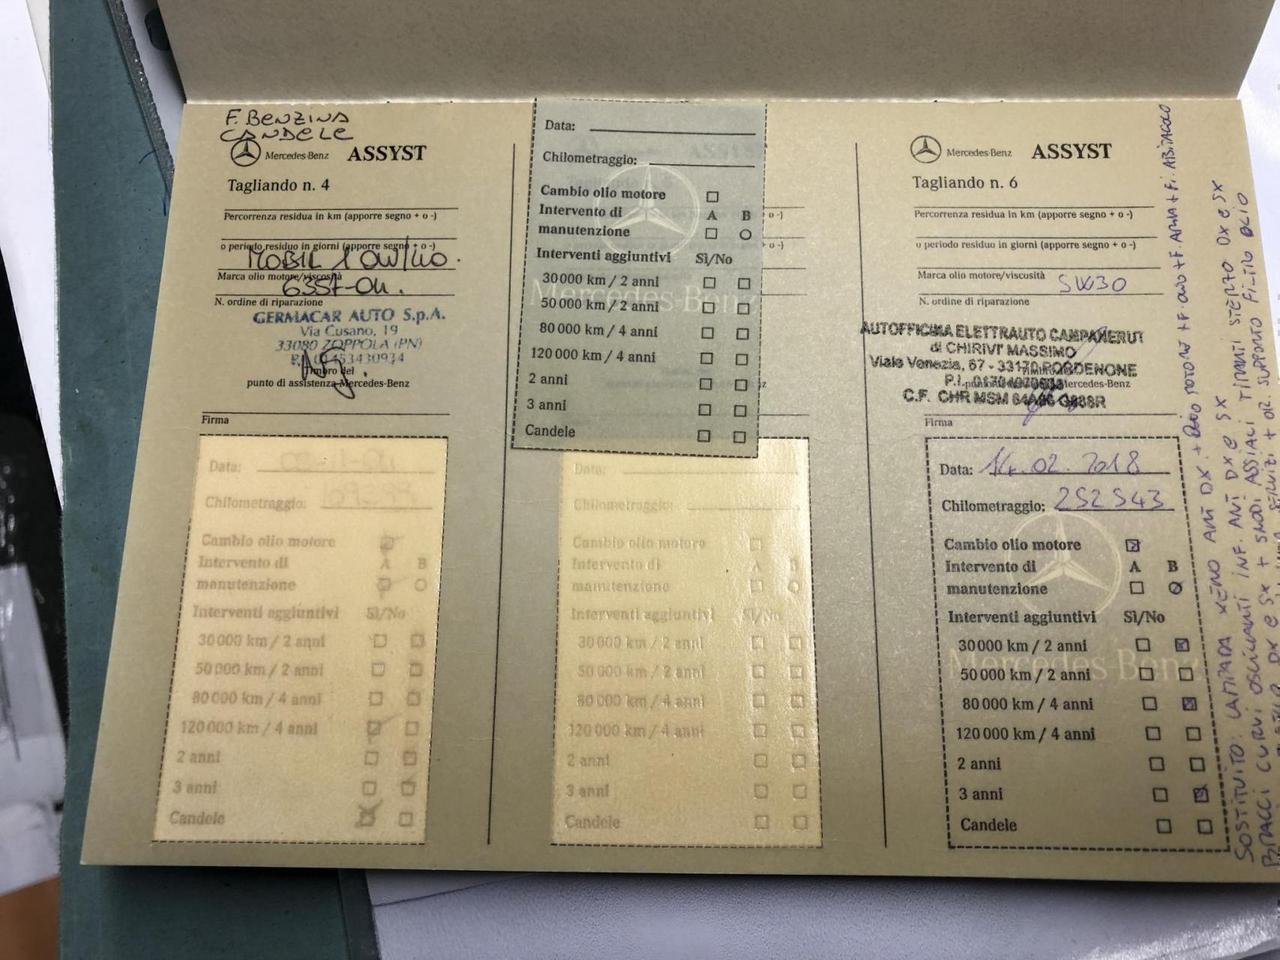 F. BENZINA
CANDELE
Mercedes-Benz ASSYST
Tagliando n. 4
Percorrenza residua in km (apporre segno + o -)
o periodo residuo in giorni (apporre segno + o -)
MOBIL 1 0W/40.
Marca olio motore/viscosità
N. ordine di riparazione
GERMACAR AUTO S.p.A.
Via Cusano, 19
33080 ZOPPOLA (PN)
Timbro del
punto di assistenza Mercedes-Benz
Firma
Data:
Chilometraggio:
Cambio olio motore
Intervento di A B
manutenzione
Interventi aggiuntivi Sì/No
30 000 km / 2 anni
50 000 km / 2 anni
80 000 km / 4 anni
120 000 km / 4 anni
2 anni
3 anni
Candele
Data:
Chilometraggio:
Cambio olio motore
Intervento di A B
manutenzione
Interventi aggiuntivi Sì/No
30 000 km / 2 anni
50 000 km / 2 anni
80 000 km / 4 anni
120 000 km / 4 anni
2 anni
3 anni
Candele
Mercedes-Benz
Data:
Chilometraggio:
Cambio olio motore
Intervento di A B
manutenzione
Interventi aggiuntivi Sì/No
30 000 km / 2 anni
50 000 km / 2 anni
80 000 km / 4 anni
120 000 km / 4 anni
2 anni
3 anni
Candele
Mercedes-Benz ASSYST
Tagliando n. 6
Percorrenza residua in km (apporre segno + o -)
o periodo residuo in giorni (apporre segno + o -)
Marca olio motore/viscosità 5W30
N. ordine di riparazione
AUTOFFICINA ELETTRAUTO CAMPANERUT
di CHIRIVI' MASSIMO
Viale Venezia, 67 - 33170 PORDENONE
P.I.
Mercedes-Benz
C.F. CHR MSM
Firma
Data: 14.02.2018
Chilometraggio: 252543
Cambio olio motore
Intervento di A B
manutenzione
Interventi aggiuntivi Sì/No
30 000 km / 2 anni
50 000 km / 2 anni
80 000 km / 4 anni
120 000 km / 4 anni
2 anni
3 anni
Candele
Mercedes-Benz
SOSTITUITO: LAMPADA XENO ANT DX + OLIO MOTORE + F. OLIO + F. ARIA + F. ABITACOLO
BRACCI CURVI OSCILLANTI INF. ANT DX E SX
DX E SX + SNODI ASSIALI TIRANTI STERZO DX E SX
SERVIZI + OR. SUPPORTO FILTRO OLIO